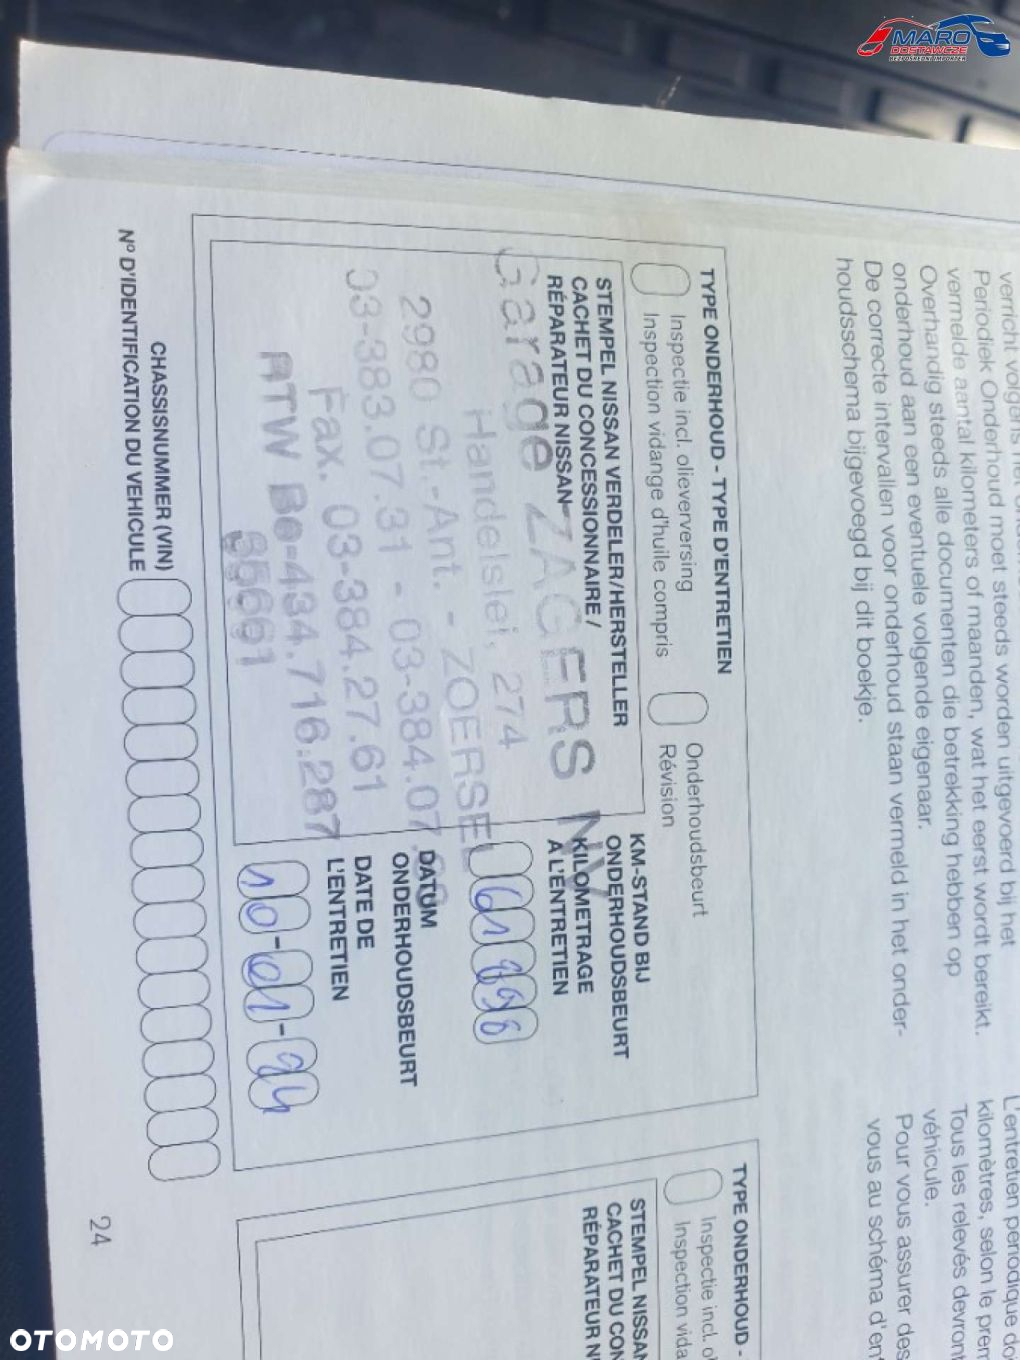 MARO
DOSTAWCZE
BEZPOŚREDNI IMPORTER
Periodiek Onderhoud moet steeds worden uitgevoerd bij het
vermelde aantal kilometers of maanden, wat het eerst wordt bereikt.
Overhandig steeds alle documenten die betrekking hebben op
onderhoud aan een eventuele volgende eigenaar.
De correcte intervallen voor onderhoud staan vermeld in het onder-
houdsschema bijgevoegd bij dit boekje.
TYPE ONDERHOUD - TYPE D'ENTRETIEN
Inspectie incl. olieverversing
Inspection vidange d'huile compris
Onderhoudsbeurt
Révision
STEMPEL NISSAN VERDELER/HERSTELLER
CACHET DU CONCESSIONNAIRE /
RÉPARATEUR NISSAN
Garage ZAGERS NV
Handelslei, 274
2980 St.-Ant. - ZOERSEL
03-383.07.31 - 03-384.07
Fax. 03-384.27.61
BTW Be-434.716.287
KM-STAND BIJ
ONDERHOUDSBEURT
KILOMETRAGE
À L'ENTRETIEN
DATUM
ONDERHOUDSBEURT
DATE DE
L'ENTRETIEN
CHASSISNUMMER (VIN)
Nº D'IDENTIFICATION DU VEHICULE
24
L'entretien périodique
kilomètres, selon le
Tous les relevés devront
véhicule.
Pour vous assurer des
vous au schéma
TYPE ONDERHOUD -
Inspectie incl.
Inspection
STEMPEL NISSAN
CACHET DU
RÉPARATEUR
OTOMOTO